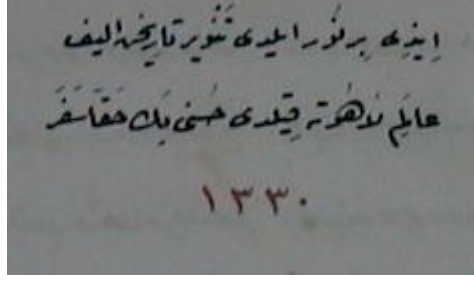 ایندی بر نور ایلدی تنویر تاریخن الیف
عالم لاهوته قیلدی حسنی بك حقا سفر
١٣٣٠